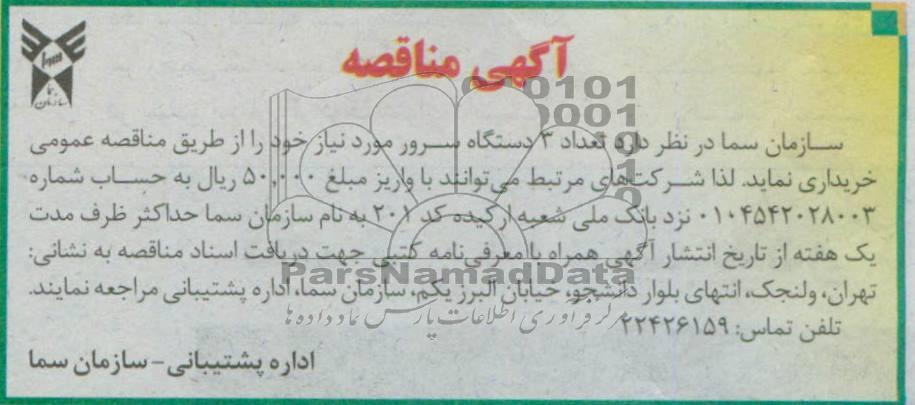 سما
سازمان
آگهی مناقصه
سازمان سما در نظر دارد تعداد ۳ دستگاه سرور مورد نیاز خود را از طریق مناقصه عمومی
خریداری نماید. لذا شرکت‌های مرتبط می‌توانند با واریز مبلغ ۵۰,۰۰۰ ریال به حساب شماره
۰۱۰۴۵۴۲۰۲۸۰۰۳ نزد بانک ملی شعبه ارکیده کد ۲۰۱ به نام سازمان سما حداکثر ظرف مدت
یک هفته از تاریخ انتشار آگهی همراه با معرفی‌نامه کتبی جهت دریافت اسناد مناقصه به نشانی:
تهران، ولنجک، انتهای بلوار دانشجو، خیابان البرز یکم، سازمان سما، اداره پشتیبانی مراجعه نمایند.
تلفن تماس: ۲۲۴۲۶۱۵۹
اداره پشتیبانی - سازمان سما
ParsNamadData
مرکز فرآوری اطلاعات پارس نماد داده ها